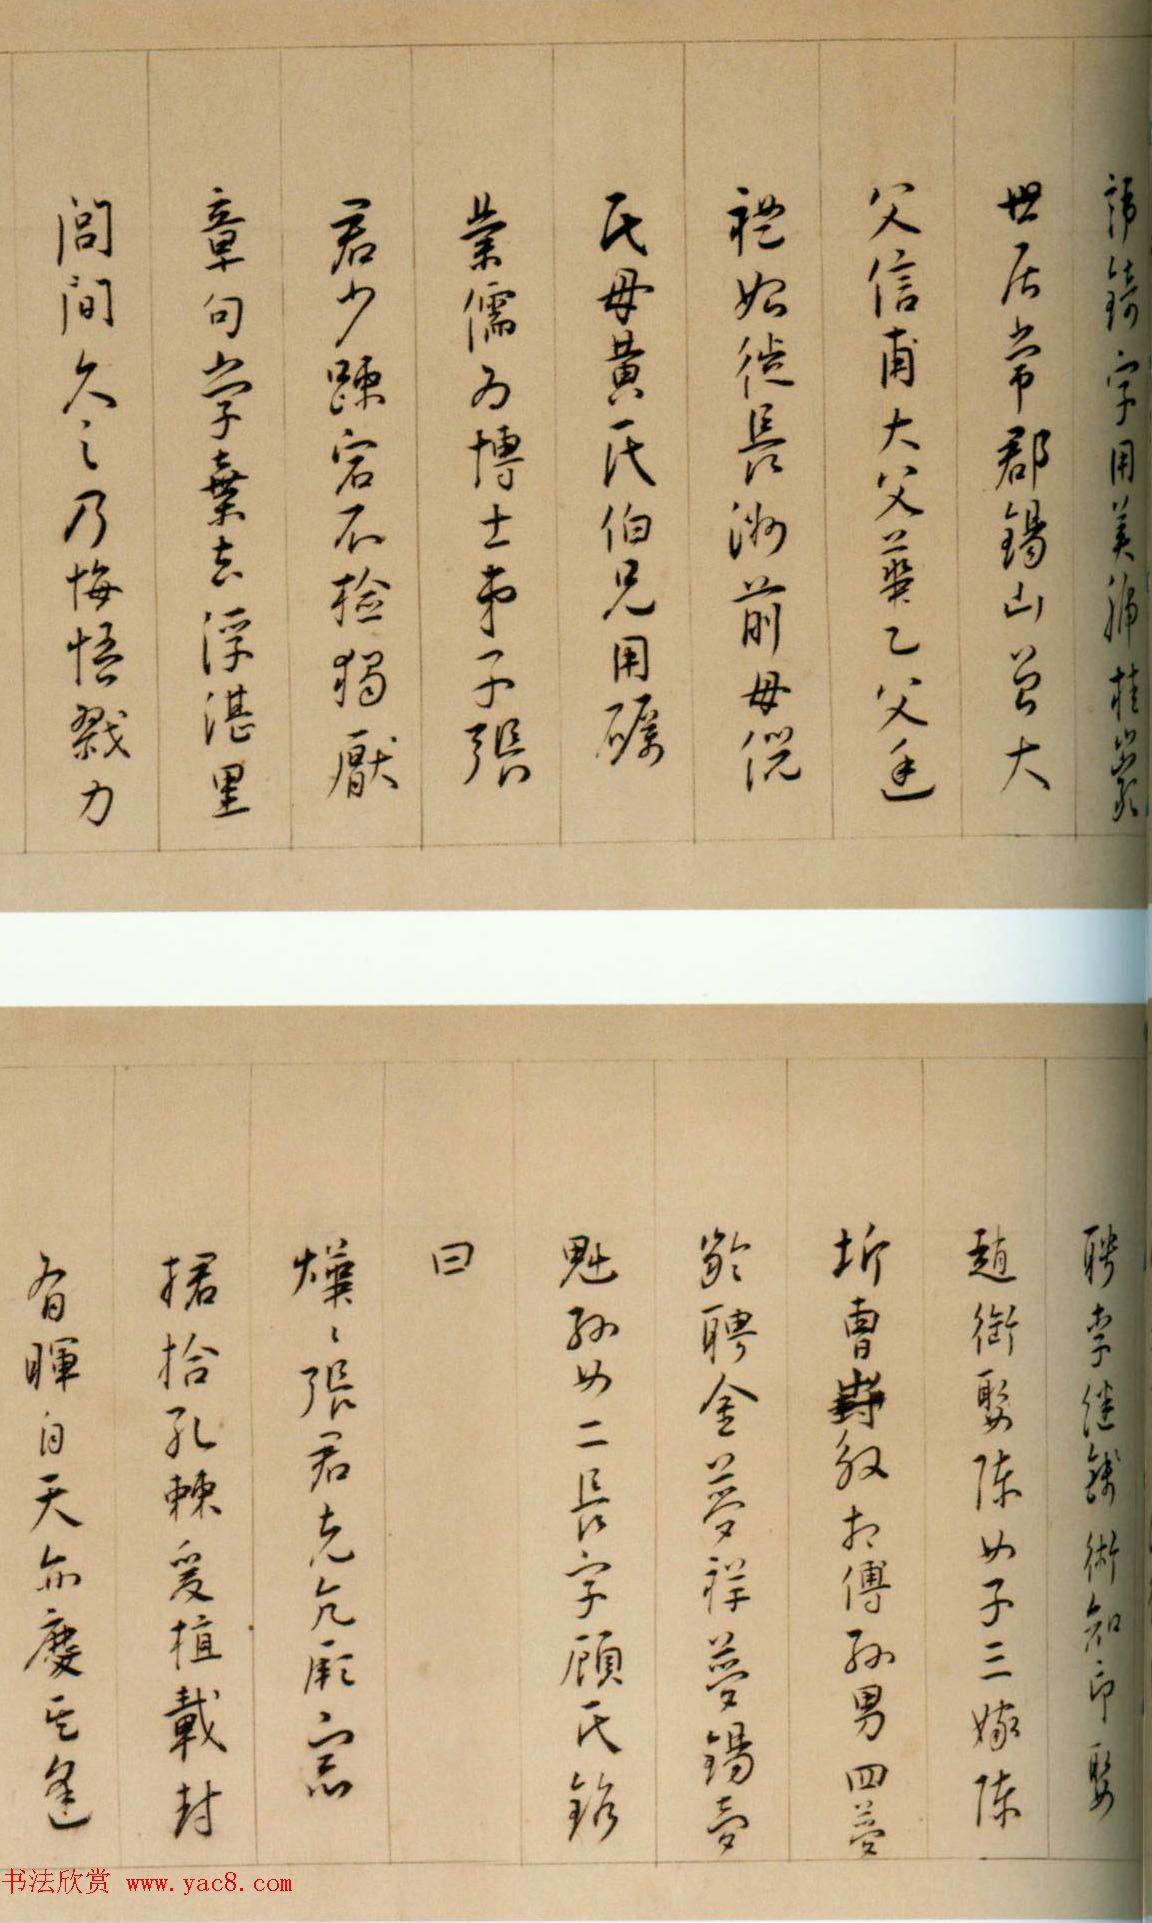 諱錡字用美號桂巖
世居常郡錫山曾大
父信甫大父葵乙父廷
禮始徙長洲前母倪
氏母黃氏伯兄用礪
業儒為博士弟子張
君少踈宕不檢獨厭
章句學棄去浮湛里
閭間久之乃悔悟戮力
聘李繼錢術知印娶
趙銜娶陳女子三嫁陳
圻曹敎相傅孫男四夢
齡聘金夢祥夢錫夢
魁孫女二長字顧氏銘
曰
燁〻張君克亢厥宗
捃拾孔棘爰植載封
有暉自天亦慶其逢
书法欣赏 www.yac8.com